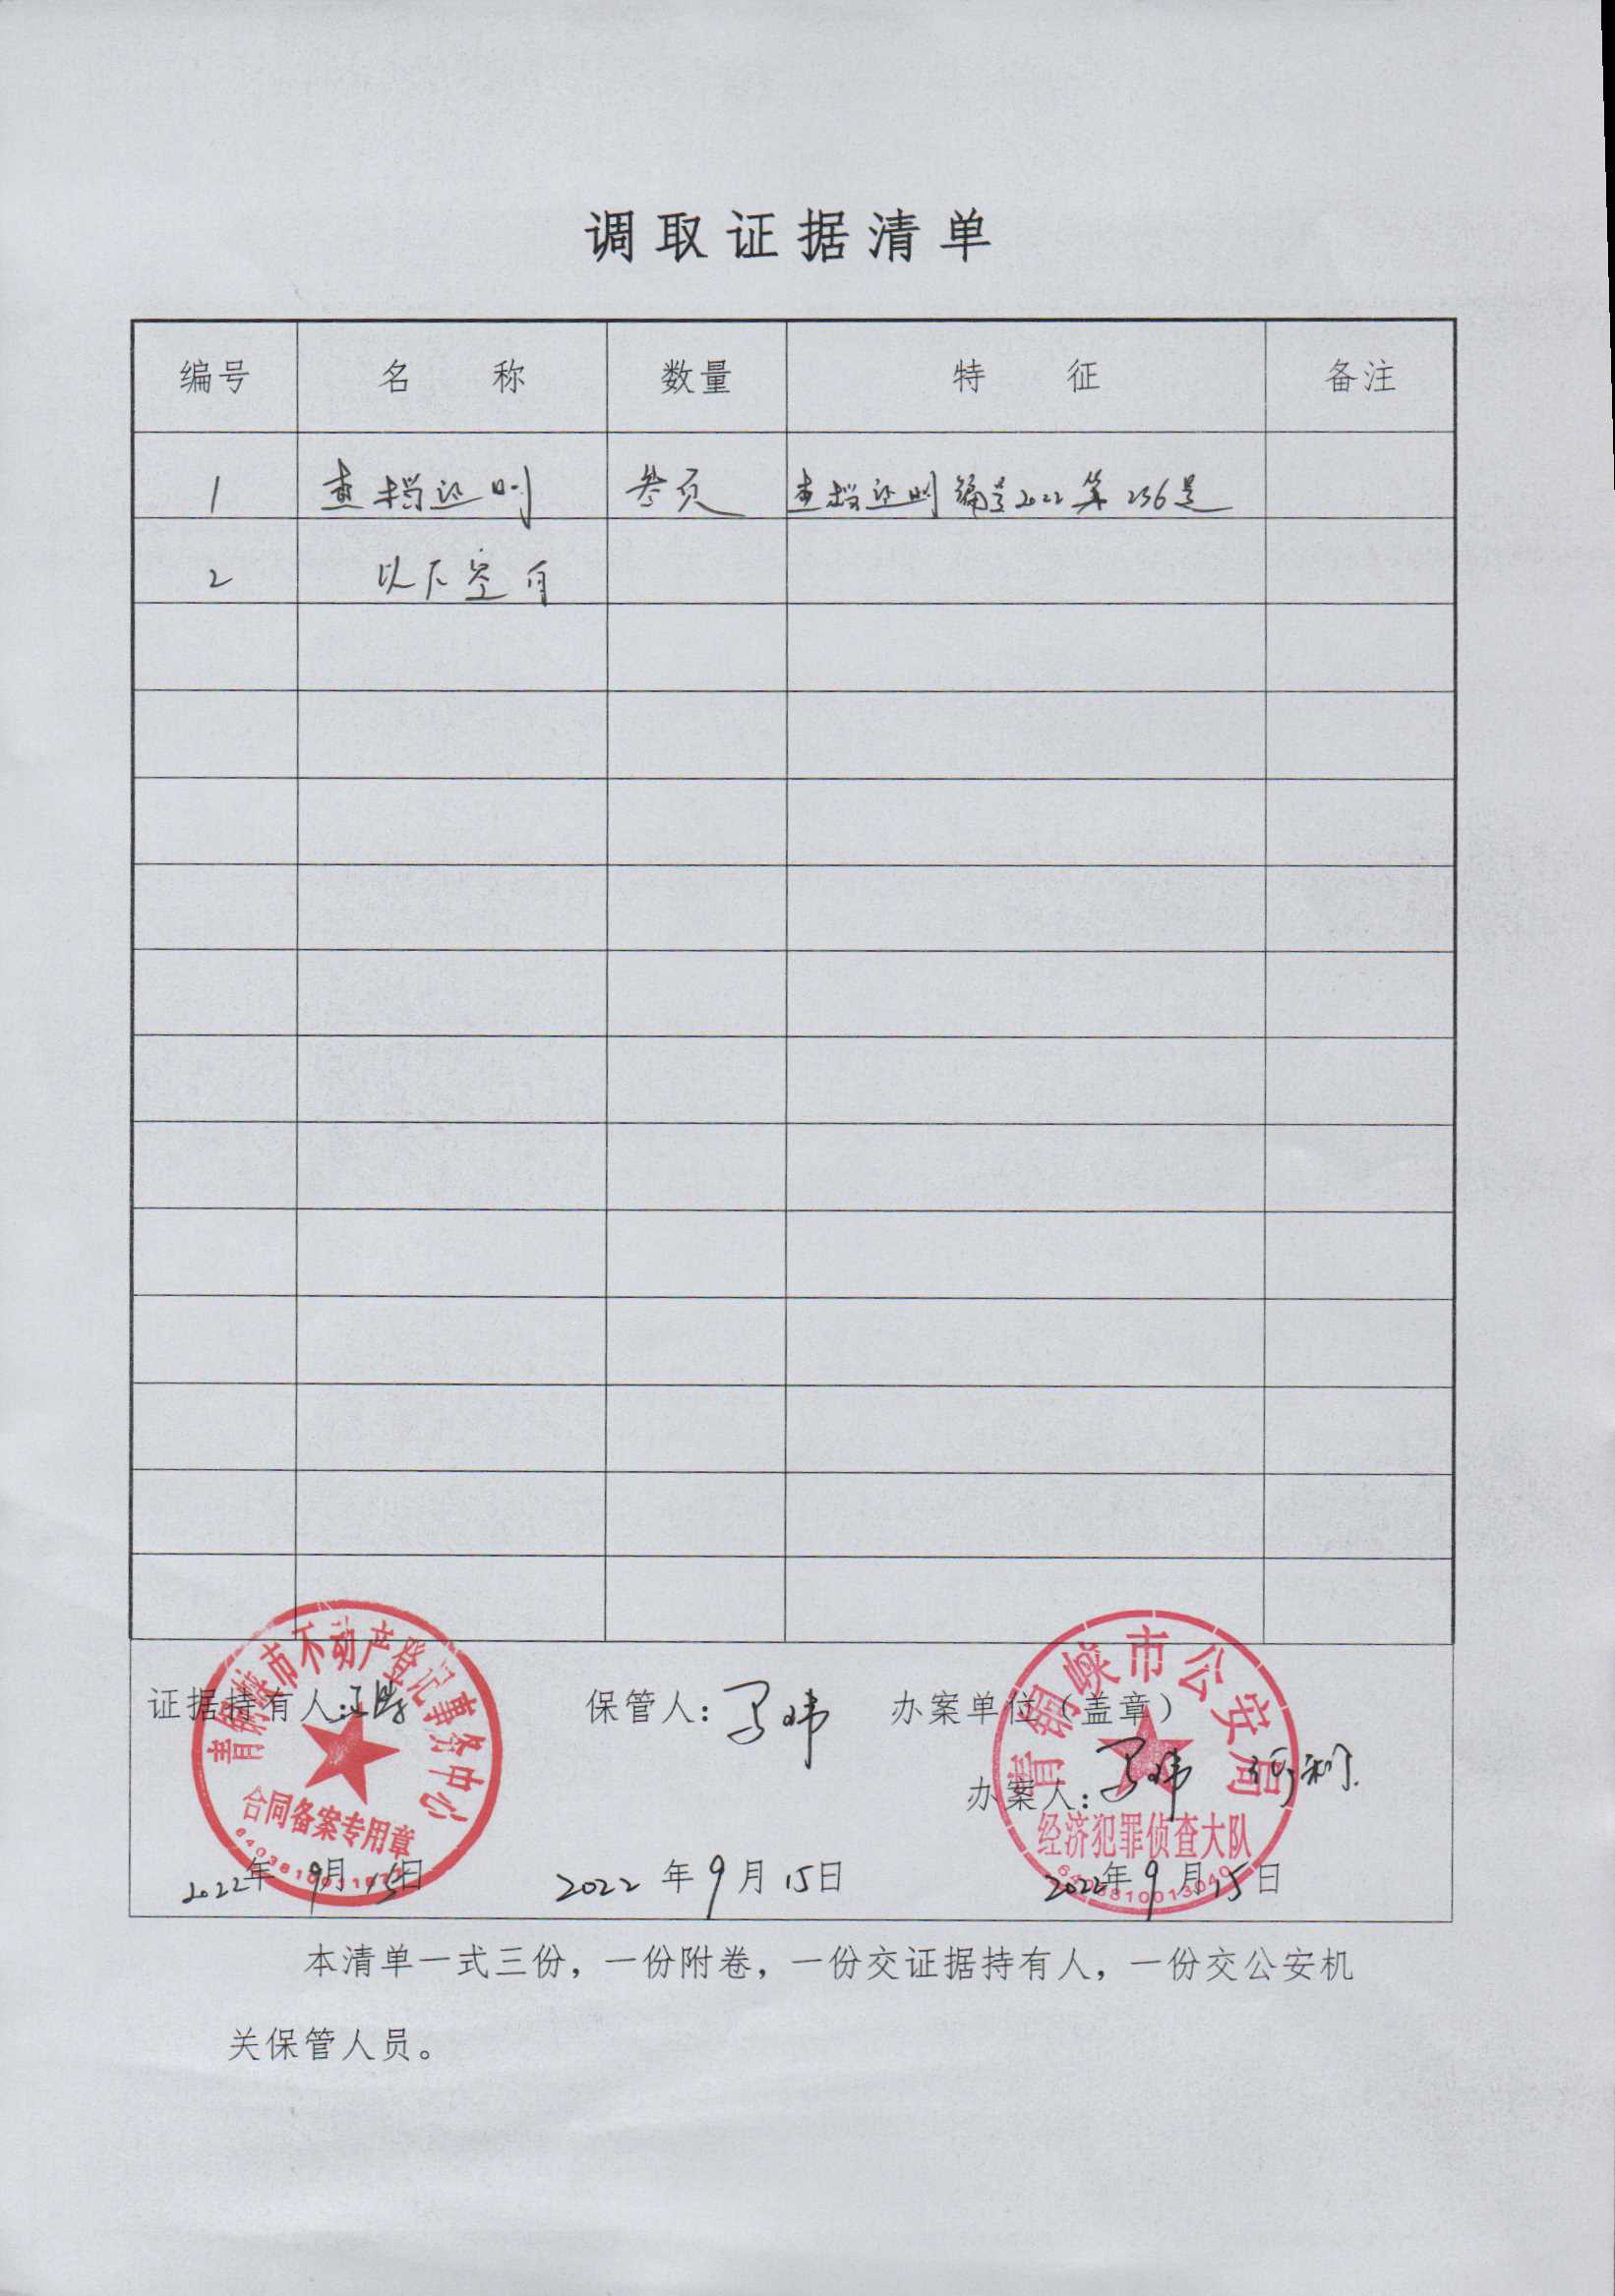 调取证据清单
编号 名称 数量 特征 备注
1 查档证明 叁页 查档证明编号2022第236号
2 以下空白
青铜峡市不动产登记事务中心
证据持有人: 保管人:马玮 办案单位(盖章)
青铜峡市公安局
办案人:马玮
合同备案专用章
经济犯罪侦查大队
2022年9月15日 2022年9月15日 2022年9月15日
本清单一式三份，一份附卷，一份交证据持有人，一份交公安机
关保管人员。